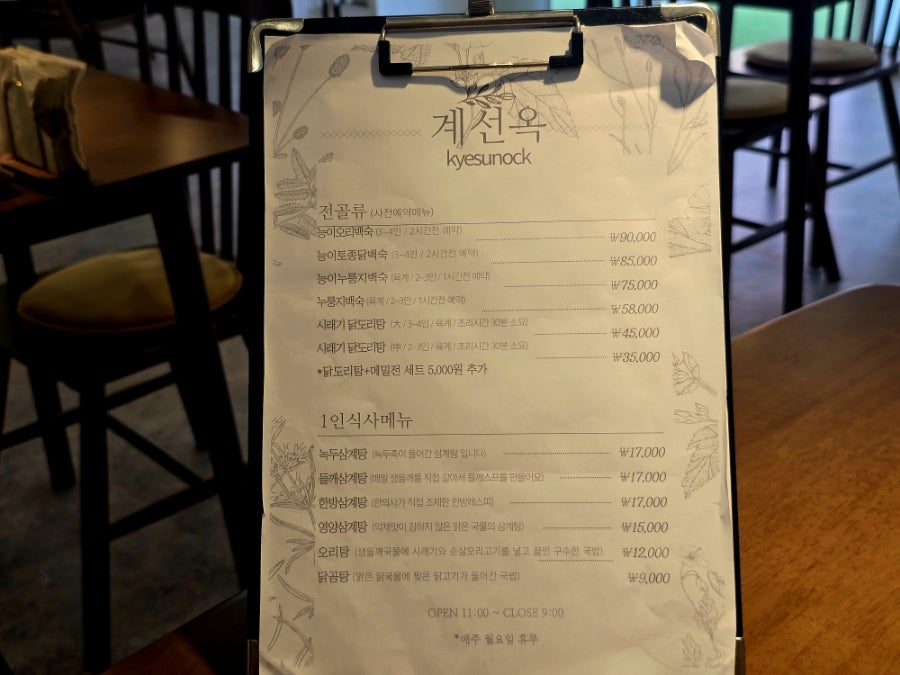 계선옥
kyesunock
전골류 (사전예약메뉴)
능이오리백숙 (3~4인 / 2시간전 예약) ₩90,000
능이토종닭백숙 (3~4인 / 2시간전 예약) ₩85,000
능이누룽지백숙 (육계 / 2~3인 / 1시간전 예약) ₩75,000
누룽지백숙 (육계 / 2~3인 / 1시간전 예약) ₩58,000
시래기 닭도리탕 (大 / 3~4인 / 육계 / 조리시간 30분 소요) ₩45,000
시래기 닭도리탕 (中 / 2~3인 / 육계 / 조리시간 30분 소요) ₩35,000
*닭도리탕+메밀전 세트 5,000원 추가
1인식사메뉴
녹두삼계탕 (녹두죽이 들어간 삼계탕 입니다) ₩17,000
들깨삼계탕 (매일 생들깨를 직접 갈아서 들깨스프를 만들어요) ₩17,000
한방삼계탕 (한의사가 직접 조제한 한방레스피) ₩17,000
영양삼계탕 (약재맛이 강하지 않은 맑은 국물의 삼계탕) ₩15,000
오리탕 (생들깨국물에 시래기와 순살오리고기를 넣고 끓인 구수한 국밥) ₩12,000
닭곰탕 (맑은 닭국물에 찢은 닭고기가 들어간 국밥) ₩9,000
OPEN 11:00 ~ CLOSE 9:00
*매주 월요일 휴무